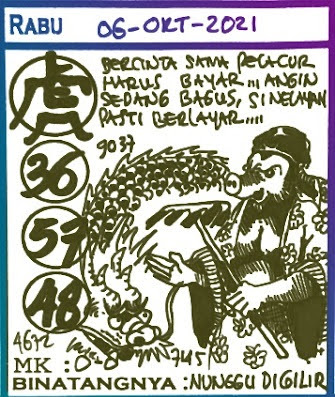 RABU 06-OKT-2021
BERCINTA SAMA PELACUR
HARUS BAYAR... ANGIN
SEDANG BAGUS, SI NELAYAN
PASTI BERLAYAR....
虎
9037
36
57
48
4672
MK : 0-0 745
BINATANGNYA : NUNGGU DIGILIR